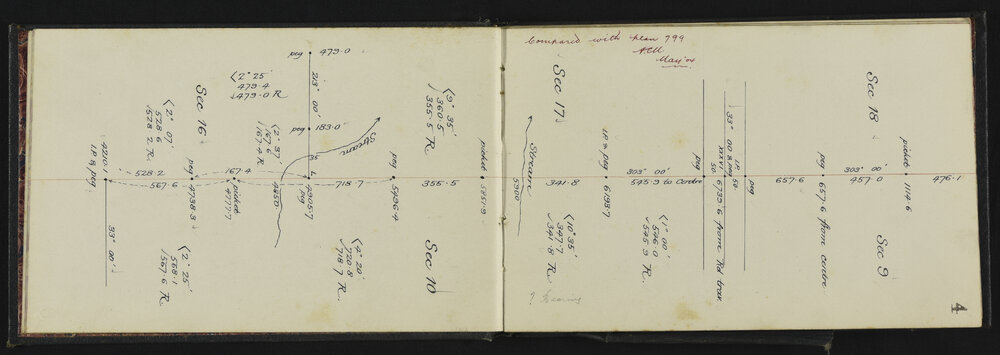 Compared with plan 799
ACM
May '04
peg 479.0
213° 00'
(2° 25'
479.4
479.0 R
Sec 16
(2° 07'
528.6
528.2 R
peg 183.0
(2° 37'
167.6
167.4 R
35
Stream
(9° 35'
360.5
355.5 R
4210.1
I.P. & peg
528.2
567.6
peg
4738.3
167.4
picket
4777.7
4850
4905.7
peg
718.7
peg
5496.4
355.5
picket 5851.9
33° 00'
(2° 25'
568.1
567.6 R
(4° 20'
720.8
718.7 R
Sec 10
Sec 17
Stream
5900
341.8
I.P. & peg
6193.7
303° 00'
545.9 to Centre
peg
33°
00
I.P. 50
& peg
XXXVI
50
6739.6 from Rd trav
peg
657.6
peg
657.6 from centre
303° 00'
457.0
Sec 18
picket
1114.6
476.1
(10° 35'
347.7
341.8 R
(1° 00'
546.0
545.9 R
Sec 9
? bearing
4